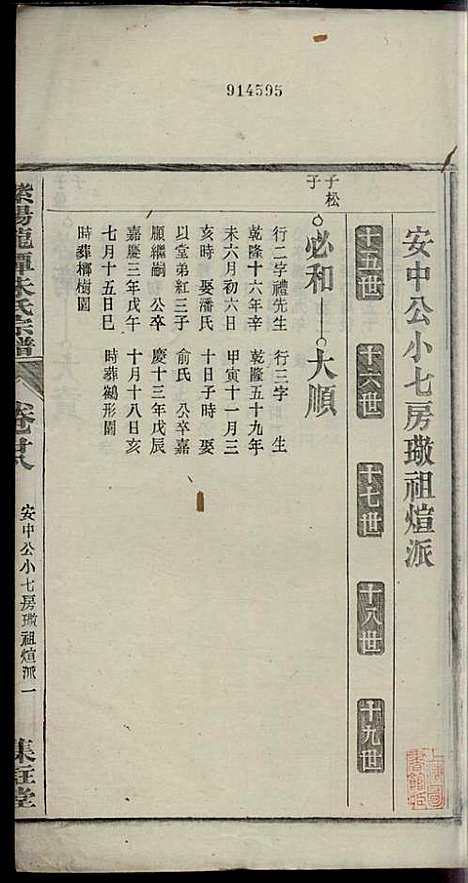 914595
安中公小七房璥祖煊派
十五世 十六世 十七世 十八世 十九世
子松
子
必和 大順
行二字禮先生
乾隆十六年辛
未六月初六日
亥時娶潘氏
以堂弟紅三子
順繼嗣 公卒
嘉慶三年戊午
七月十五日巳
時葬榔樹園
行三字 生
乾隆五十九年
甲寅十一月三
十日子時 娶
俞氏 公卒嘉
慶十三年戊辰
十月十八日亥
時葬鶴形園
紫陽龍潭朱氏宗譜
卷廿八
安中公小七房璥祖煊派 一
集紅堂
上海圖書館藏